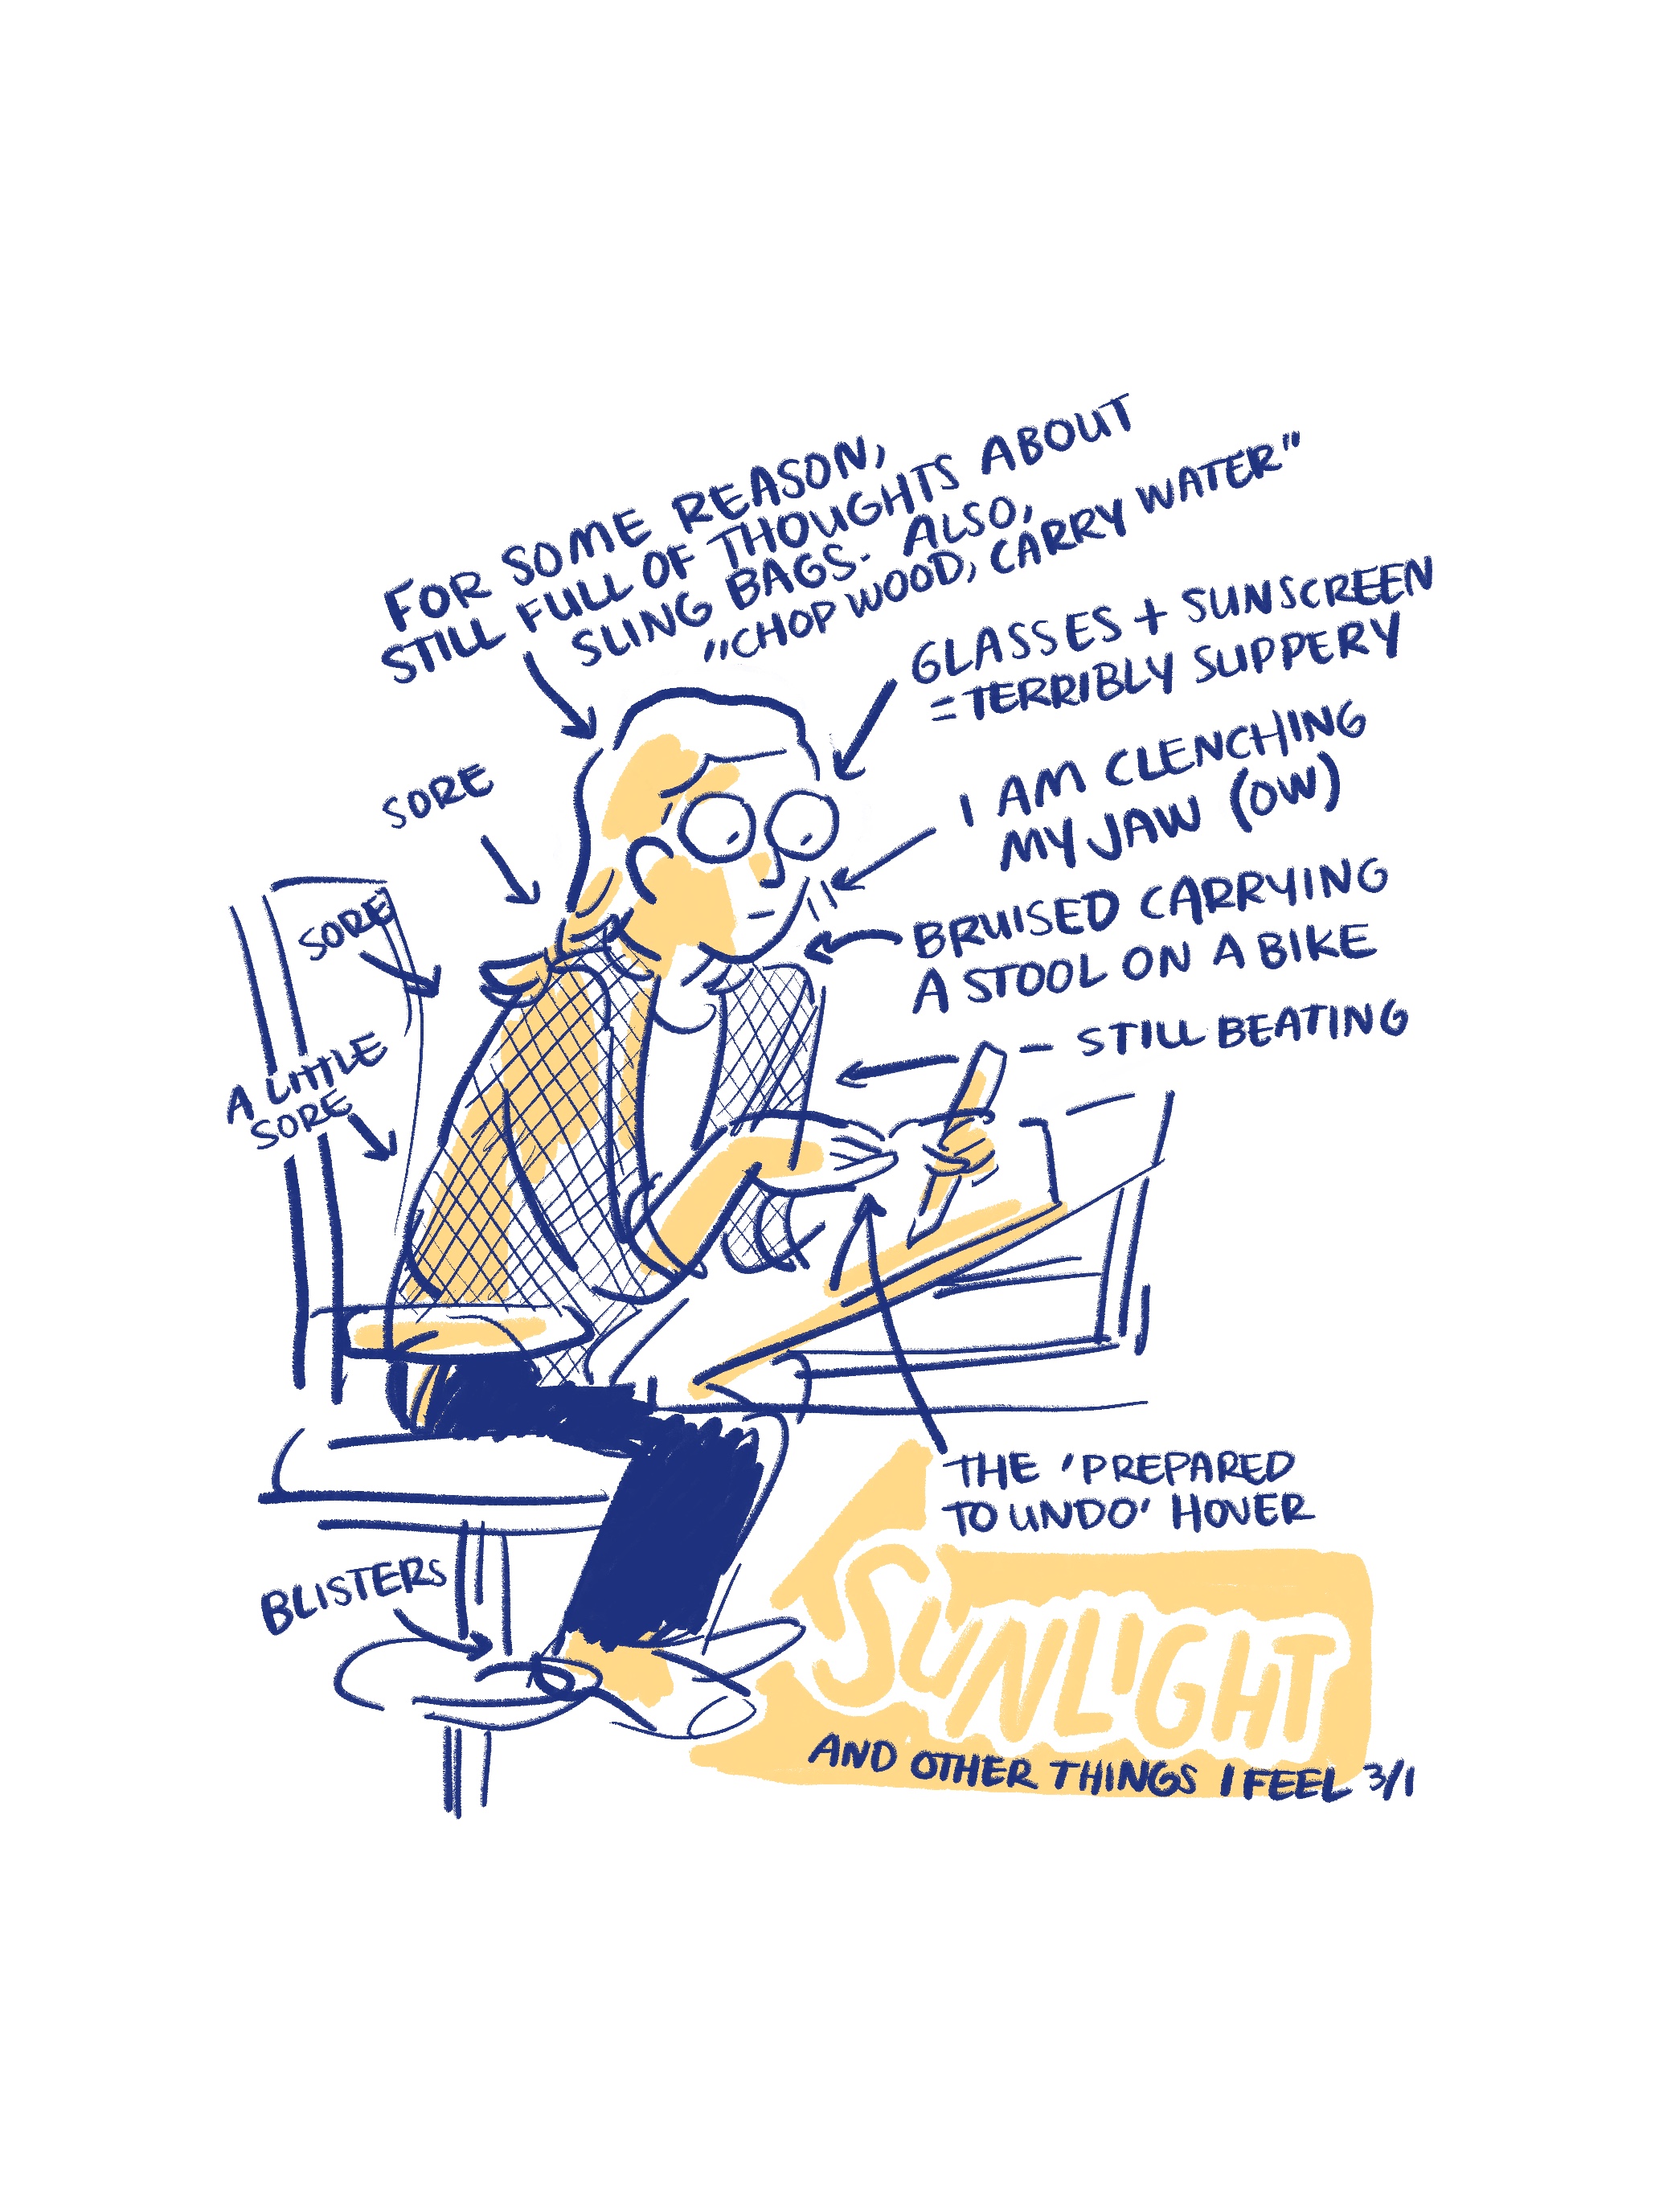 FOR SOME REASON,
STILL FULL OF THOUGHTS ABOUT
SLING BAGS. ALSO,
"CHOP WOOD, CARRY WATER"
GLASSES + SUNSCREEN
= TERRIBLY SLIPPERY
I AM CLENCHING
MY JAW (OW)
SORE
BRUISED CARRYING
A STOOL ON A BIKE
SORE
- STILL BEATING
A LITTLE
SORE
THE 'PREPARED
TO UNDO' HOVER
BLISTERS
SUNLIGHT
AND OTHER THINGS I FEEL 3/1